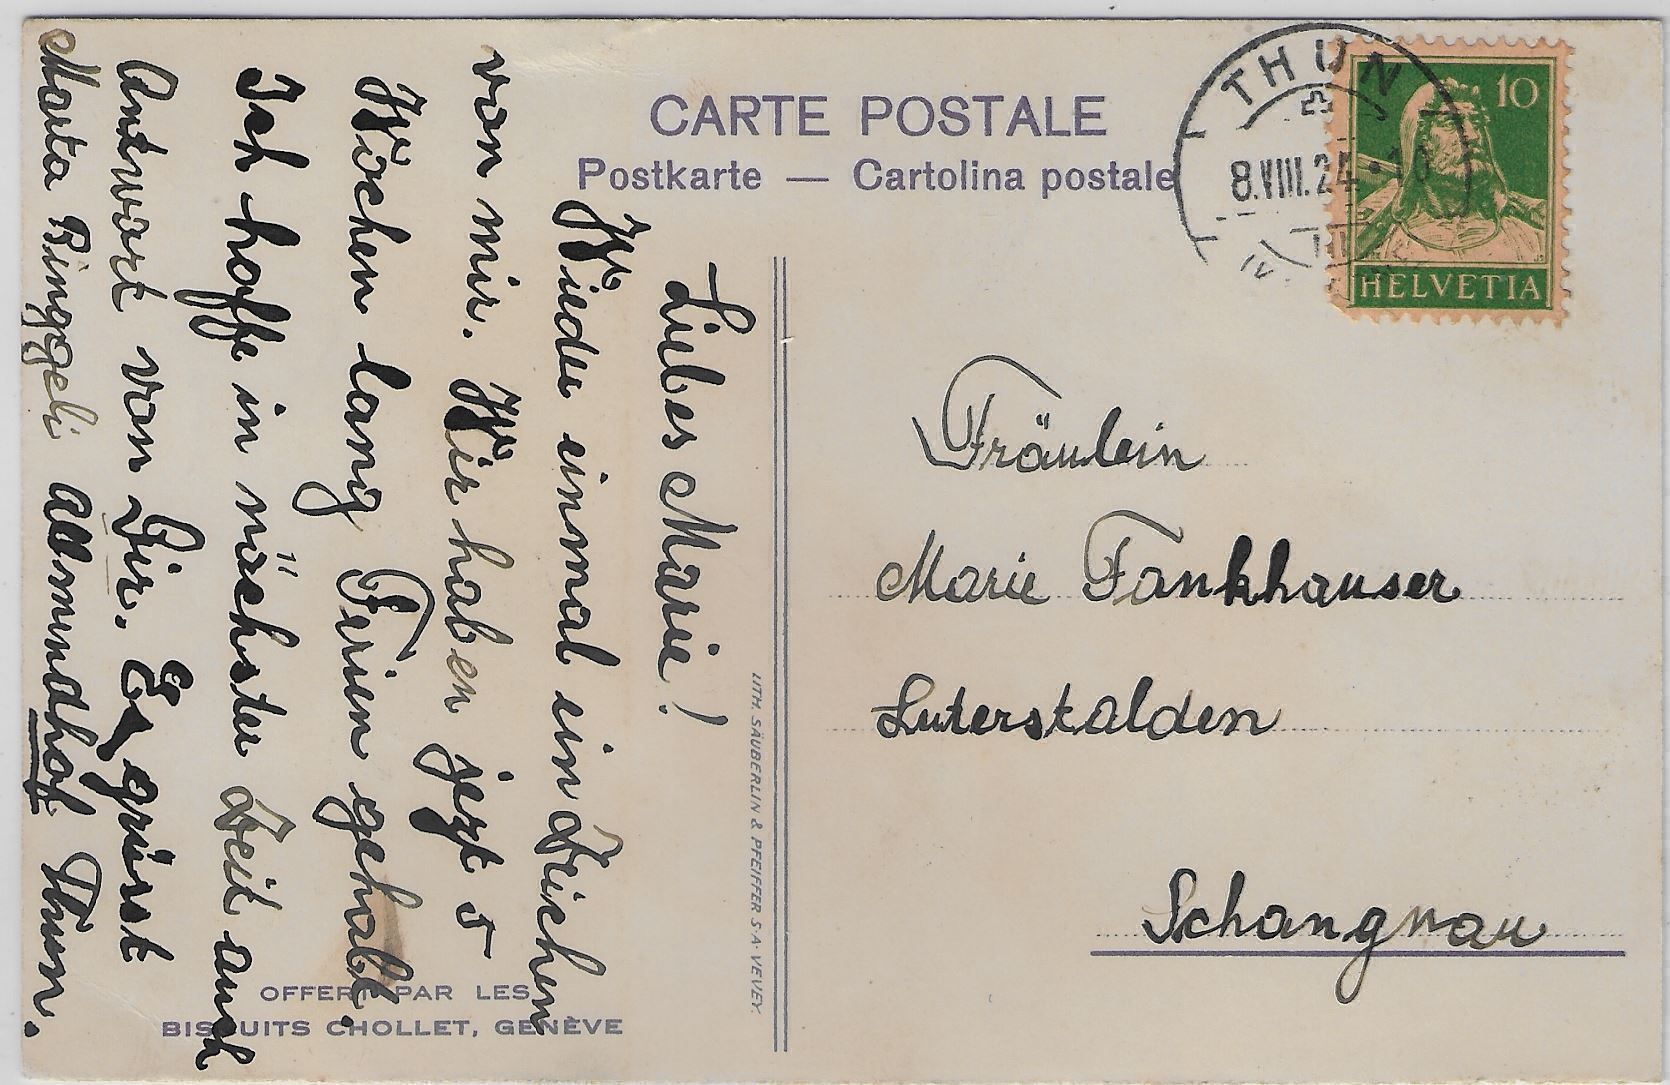 CARTE POSTALE
Postkarte — Cartolina postale
THUN
8.VIII.24.-10
10
HELVETIA
Liebes Marie!
Wieder einmal ein Zeichen
von mir. Wir haben jezt 5
Wochen lang Ferien gehabt.
Ich hoffe in nächster Zeit auch
Antwort von Dir. Es grüsst
Marta Binggeli allmendhof Thun.
Fräulein
Marie Fankhauser
Luterstalden
Schangnau
LITH. SÄUBERLIN & PFEIFFER S.A. VEVEY.
OFFERT PAR LES
BISCUITS CHOLLET, GENÈVE